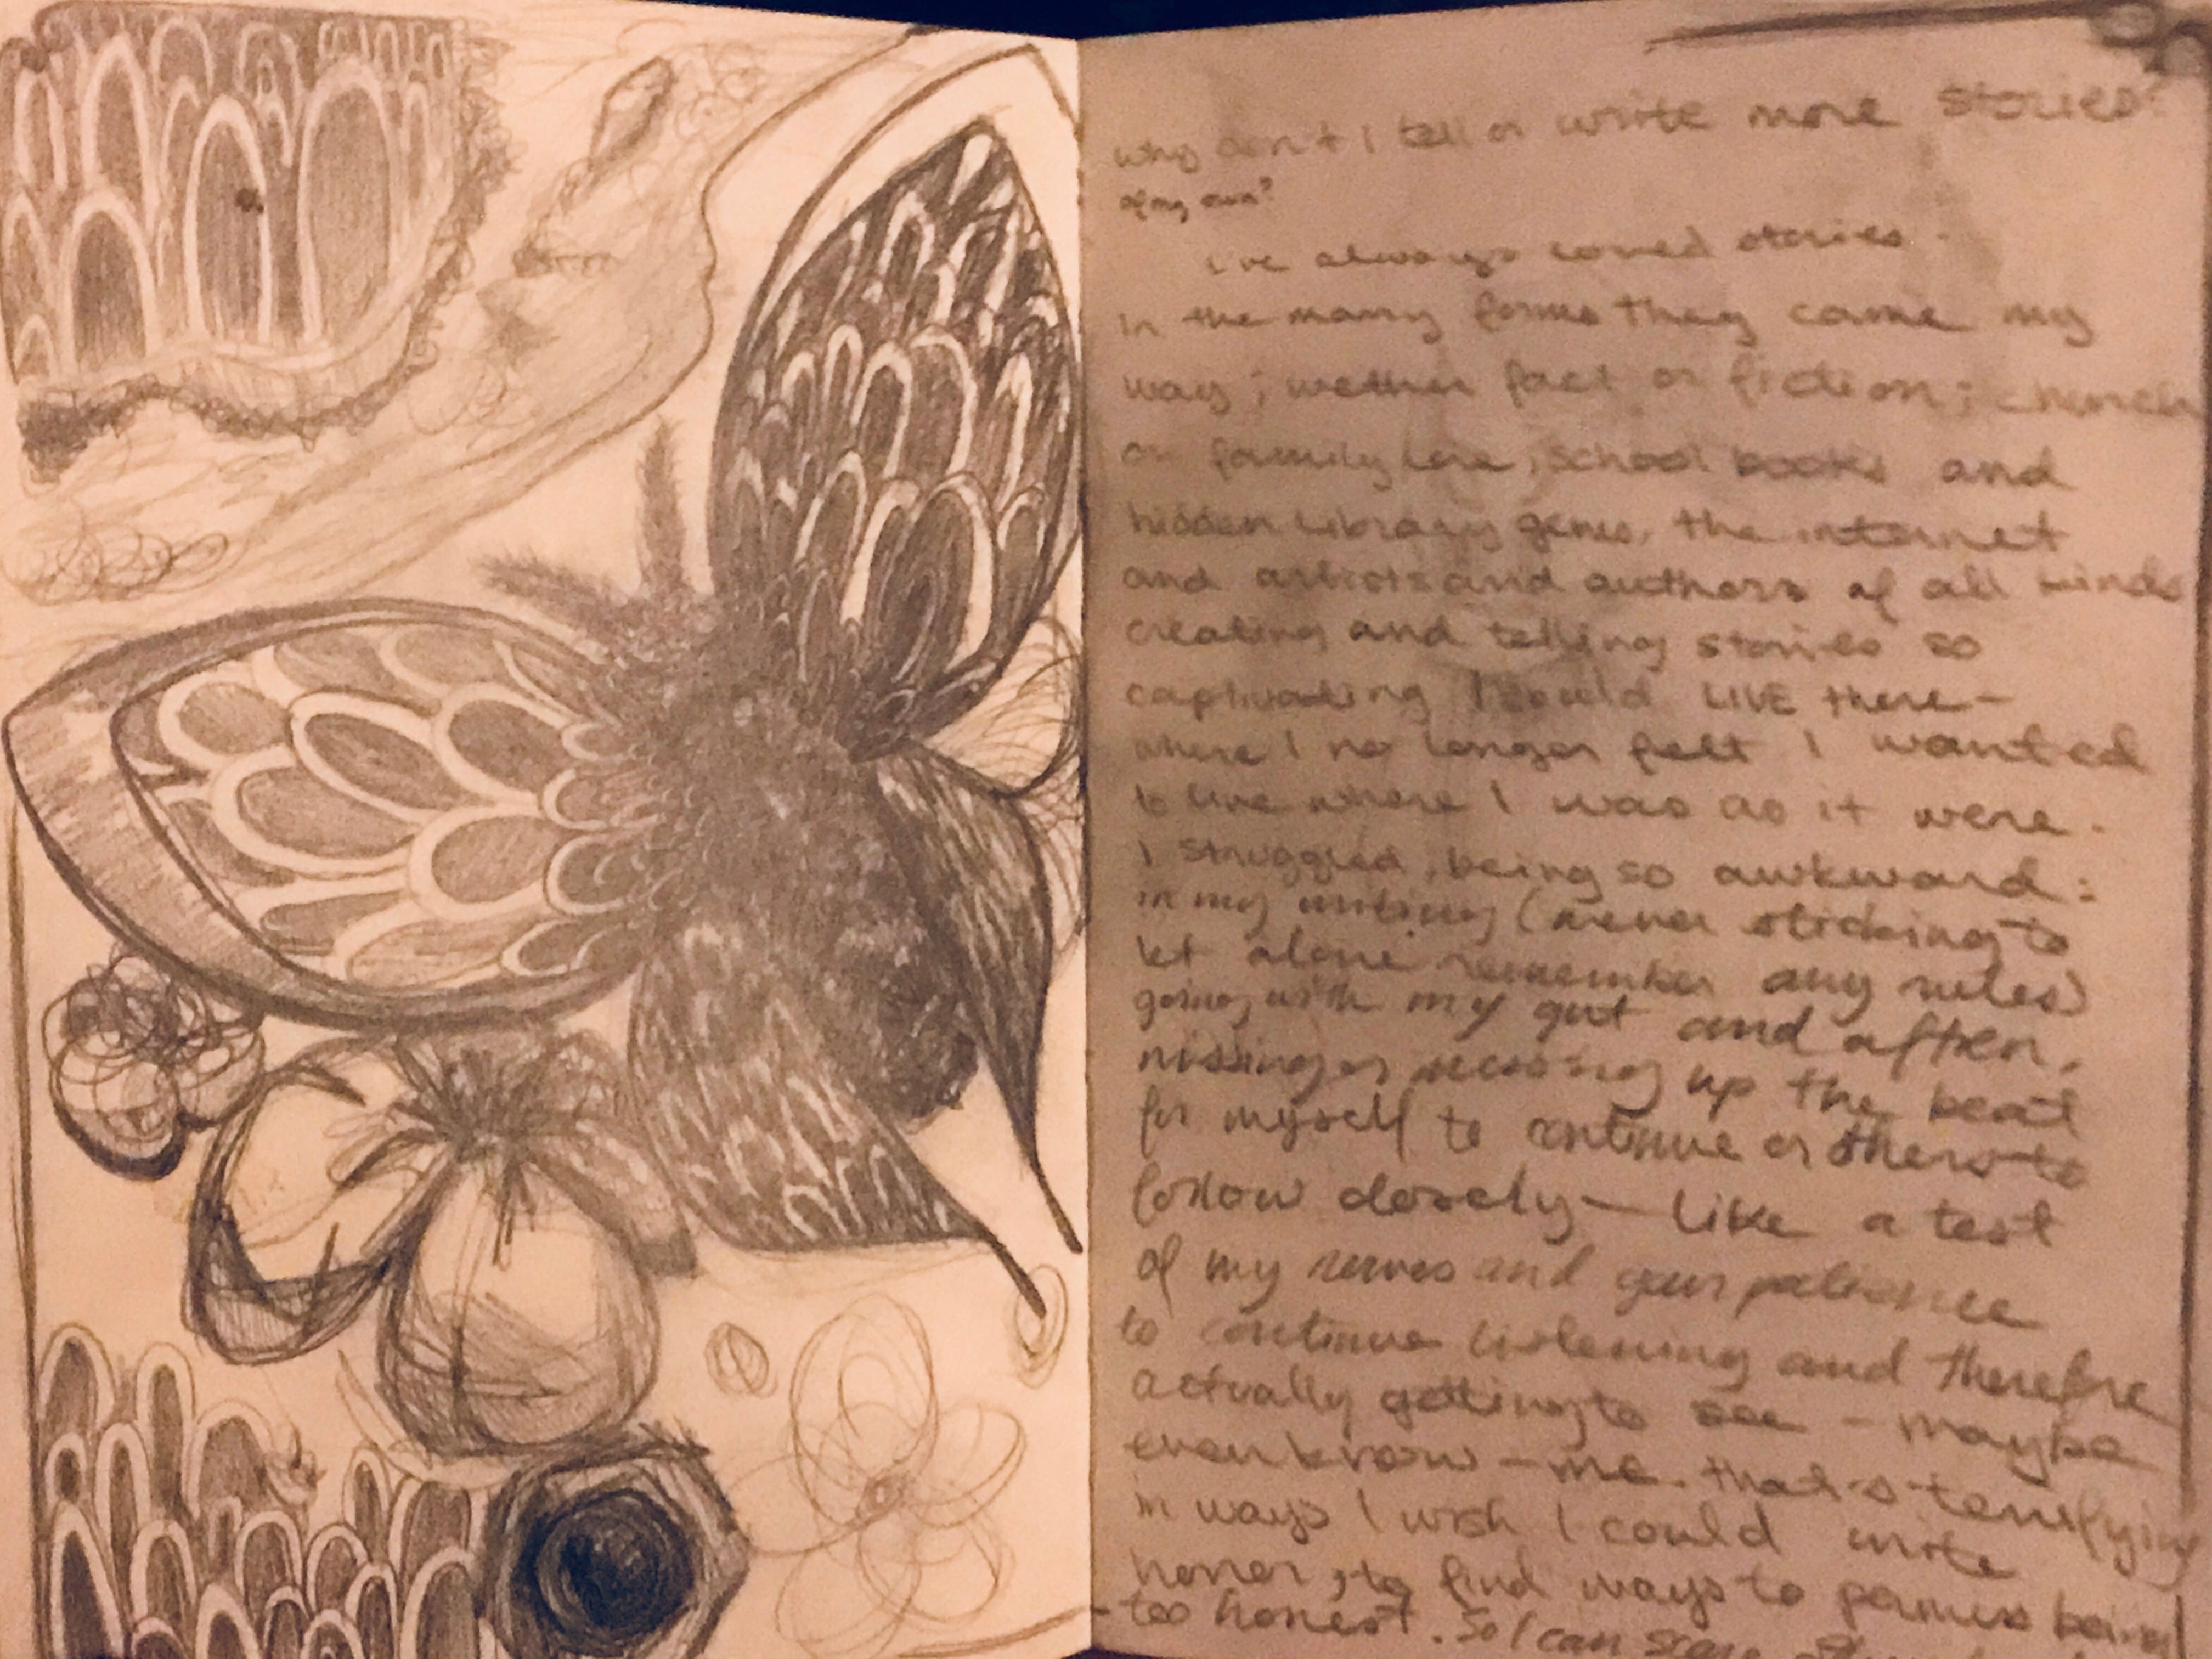 why don't I tell or write more stories?
of my own?
i've always loved stories.
in the many forms they came my
way; wether fact or fiction; church
or family lore, school books and
hidden library gems, the internet
and artists and authors of all kinds
creating and telling stories so
captivating I could LIVE there-
where I no longer felt I wanted
to live where I was as it were.
I struggled, being so awkward:
in my writing (never sticking to
let alone remember any rules)
going with my gut and often,
missing or messing up the beat
for myself to continue or others to
follow closely - like a test
of my nerves and your patience
to continue listening and therefore
actually getting to see - maybe
even know - me. that's terrifying
in ways I wish I could write
horror, to find ways to being
- too honest. So I can